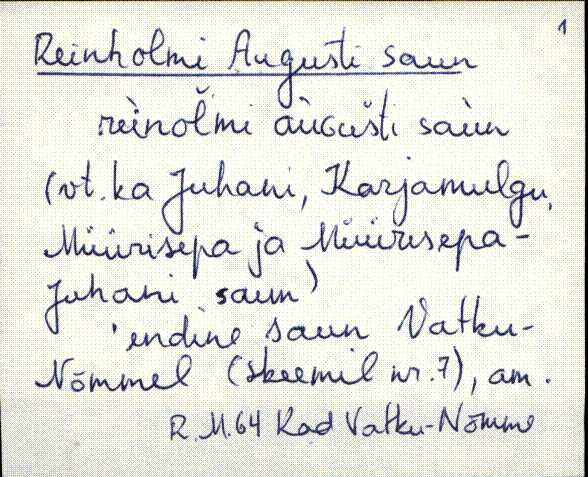 1
Reinholmi Augusti saun
rèinoľmi àuGušti saùn
(vt. ka Juhani, Karjamulgu,
Müürisepa ja Müürisepa-
Juhani saun)
'endine saun Vatku-
Nõmmel (skeemil nr. 7), am.
R.M.64 Kad Vatku-Nõmme